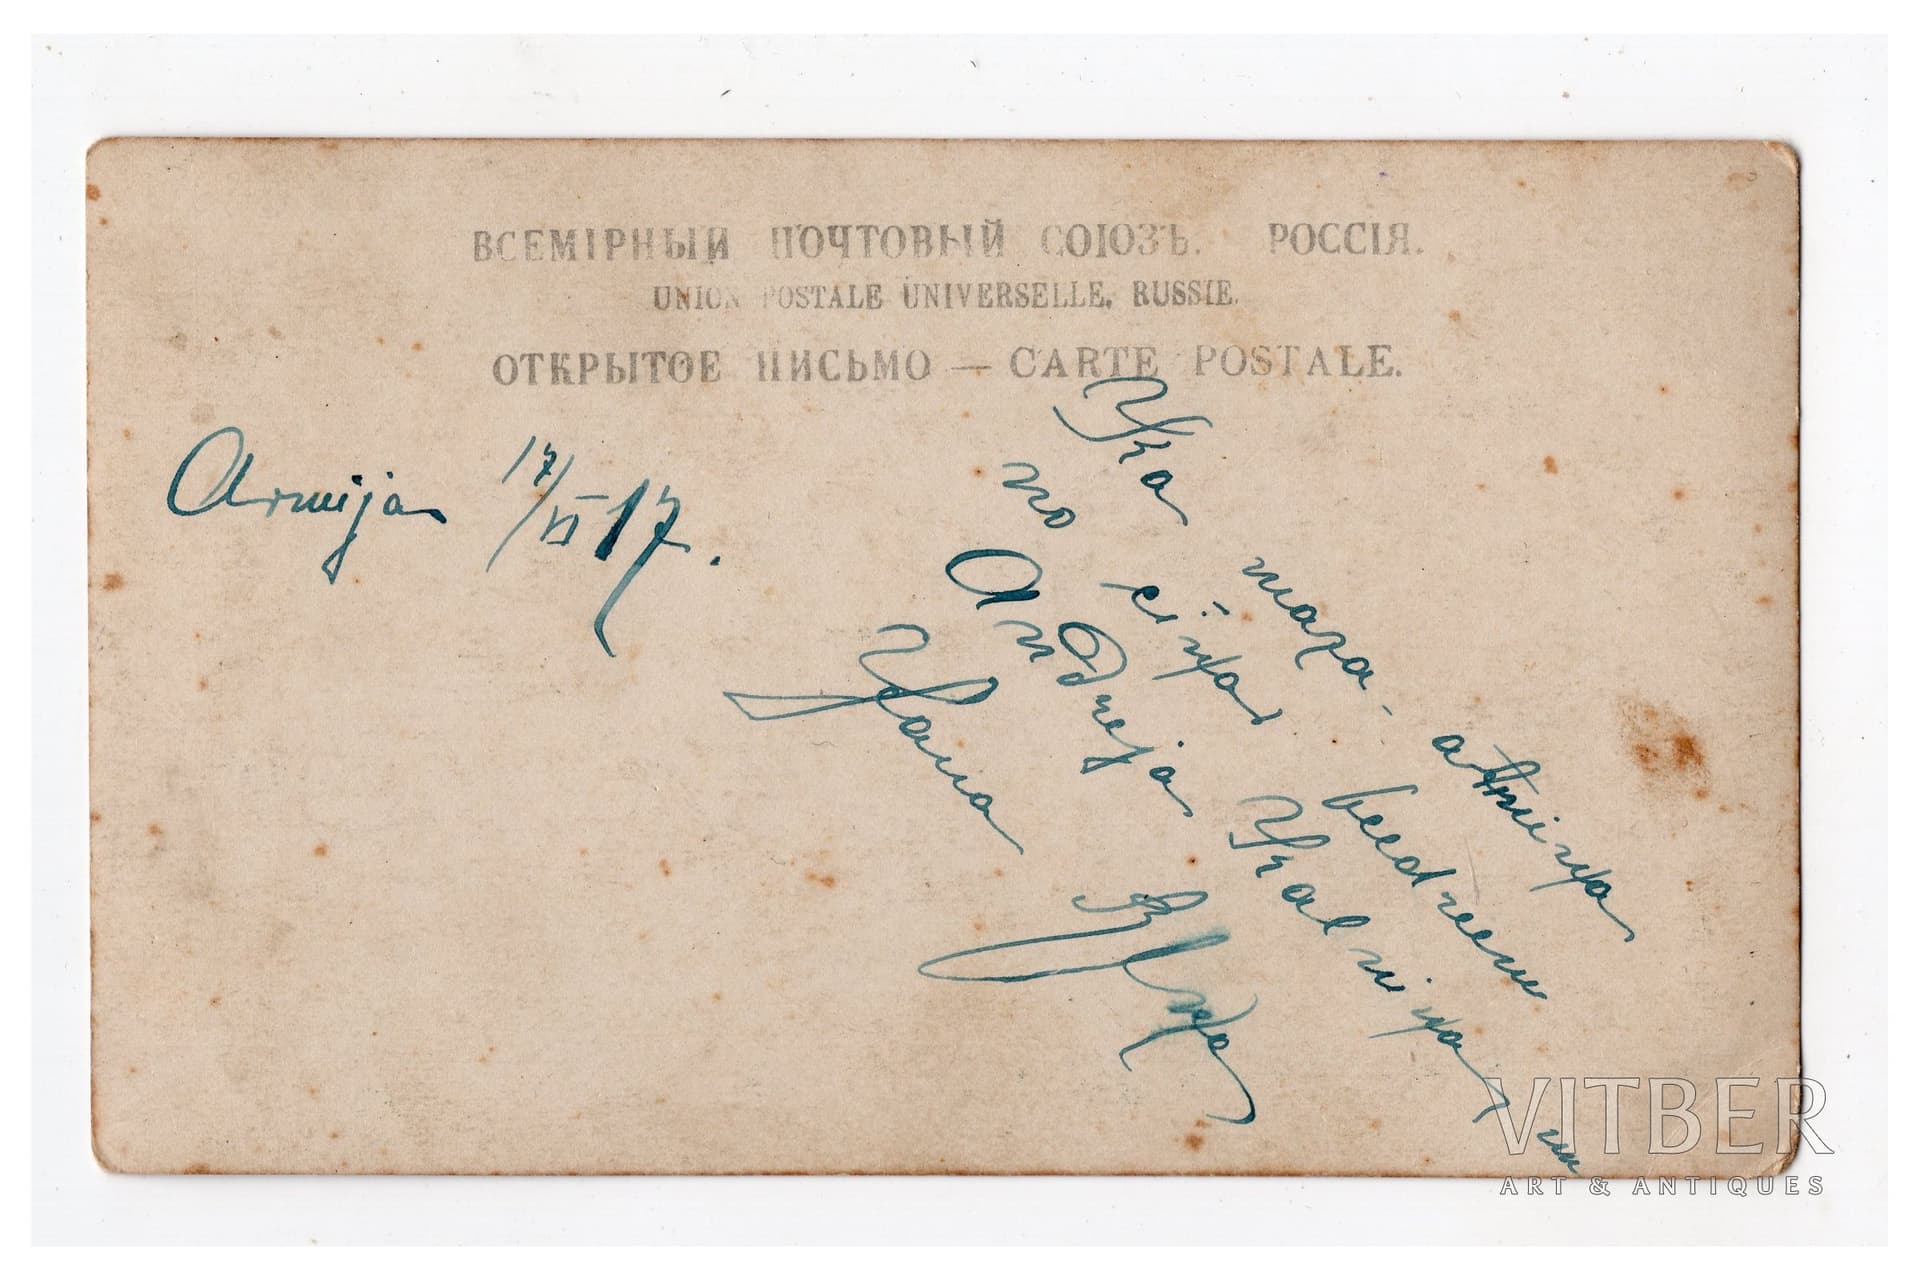 ВСЕМІРНЫЙ ПОЧТОВЫЙ СОЮЗЪ. РОССІЯ.
UNION POSTALE UNIVERSELLE, RUSSIE.
ОТКРЫТОЕ ПИСЬМО — CARTE POSTALE.
Armija 17/VI 17.
Kā maza atmiņa
no cīņas beedreem
Andreja Kalniņa un
VITBER
ART & ANTIQUES